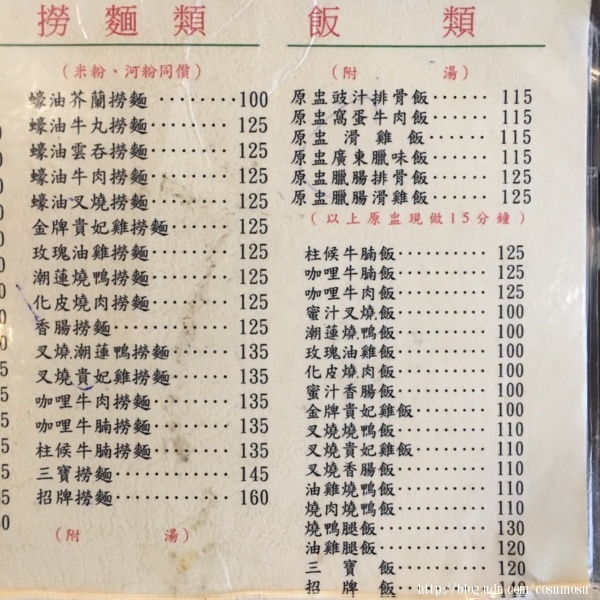 撈麵類
（米粉、河粉同價）
蠔油芥蘭撈麵 ········100
蠔油牛丸撈麵········125
蠔油雲吞撈麵········125
蠔油牛肉撈麵········125
蠔油叉燒撈麵········125
金牌貴妃雞撈麵······125
玫瑰油雞撈麵········125
潮蓮燒鴨撈麵········125
化皮燒肉撈麵········125
香腸撈麵············125
叉燒潮蓮鴨撈麵······135
叉燒貴妃雞撈麵······135
咖哩牛肉撈麵········135
咖哩牛腩撈麵········135
柱候牛腩撈麵········135
三寶撈麵············145
招牌撈麵············160
（附 湯）
飯 類
（附 湯）
原盅豉汁排骨飯······ 115
原盅窩蛋牛肉飯······ 115
原盅 滑 雞 飯······ 115
原盅廣東臘味飯······ 115
原盅臘腸排骨飯······ 125
原盅臘腸滑雞飯······ 125
（以上原盅現做15分鐘）
柱候牛腩飯·········· 125
咖哩牛腩飯·········· 125
咖哩牛肉飯·········· 125
蜜汁叉燒飯·········· 100
潮蓮燒鴨飯·········· 100
玫瑰油雞飯·········· 100
化皮燒肉飯·········· 100
蜜汁香腸飯·········· 100
金牌貴妃雞飯········ 100
叉燒燒鴨飯·········· 110
叉燒貴妃雞飯········ 110
叉燒香腸飯·········· 110
油雞燒鴨飯·········· 110
燒肉燒鴨飯·········· 110
燒鴨腿飯············ 130
油雞腿飯············ 120
三 寶 飯············ 120
招 牌 飯············ 140
http://blog.udn.com/cosumosu